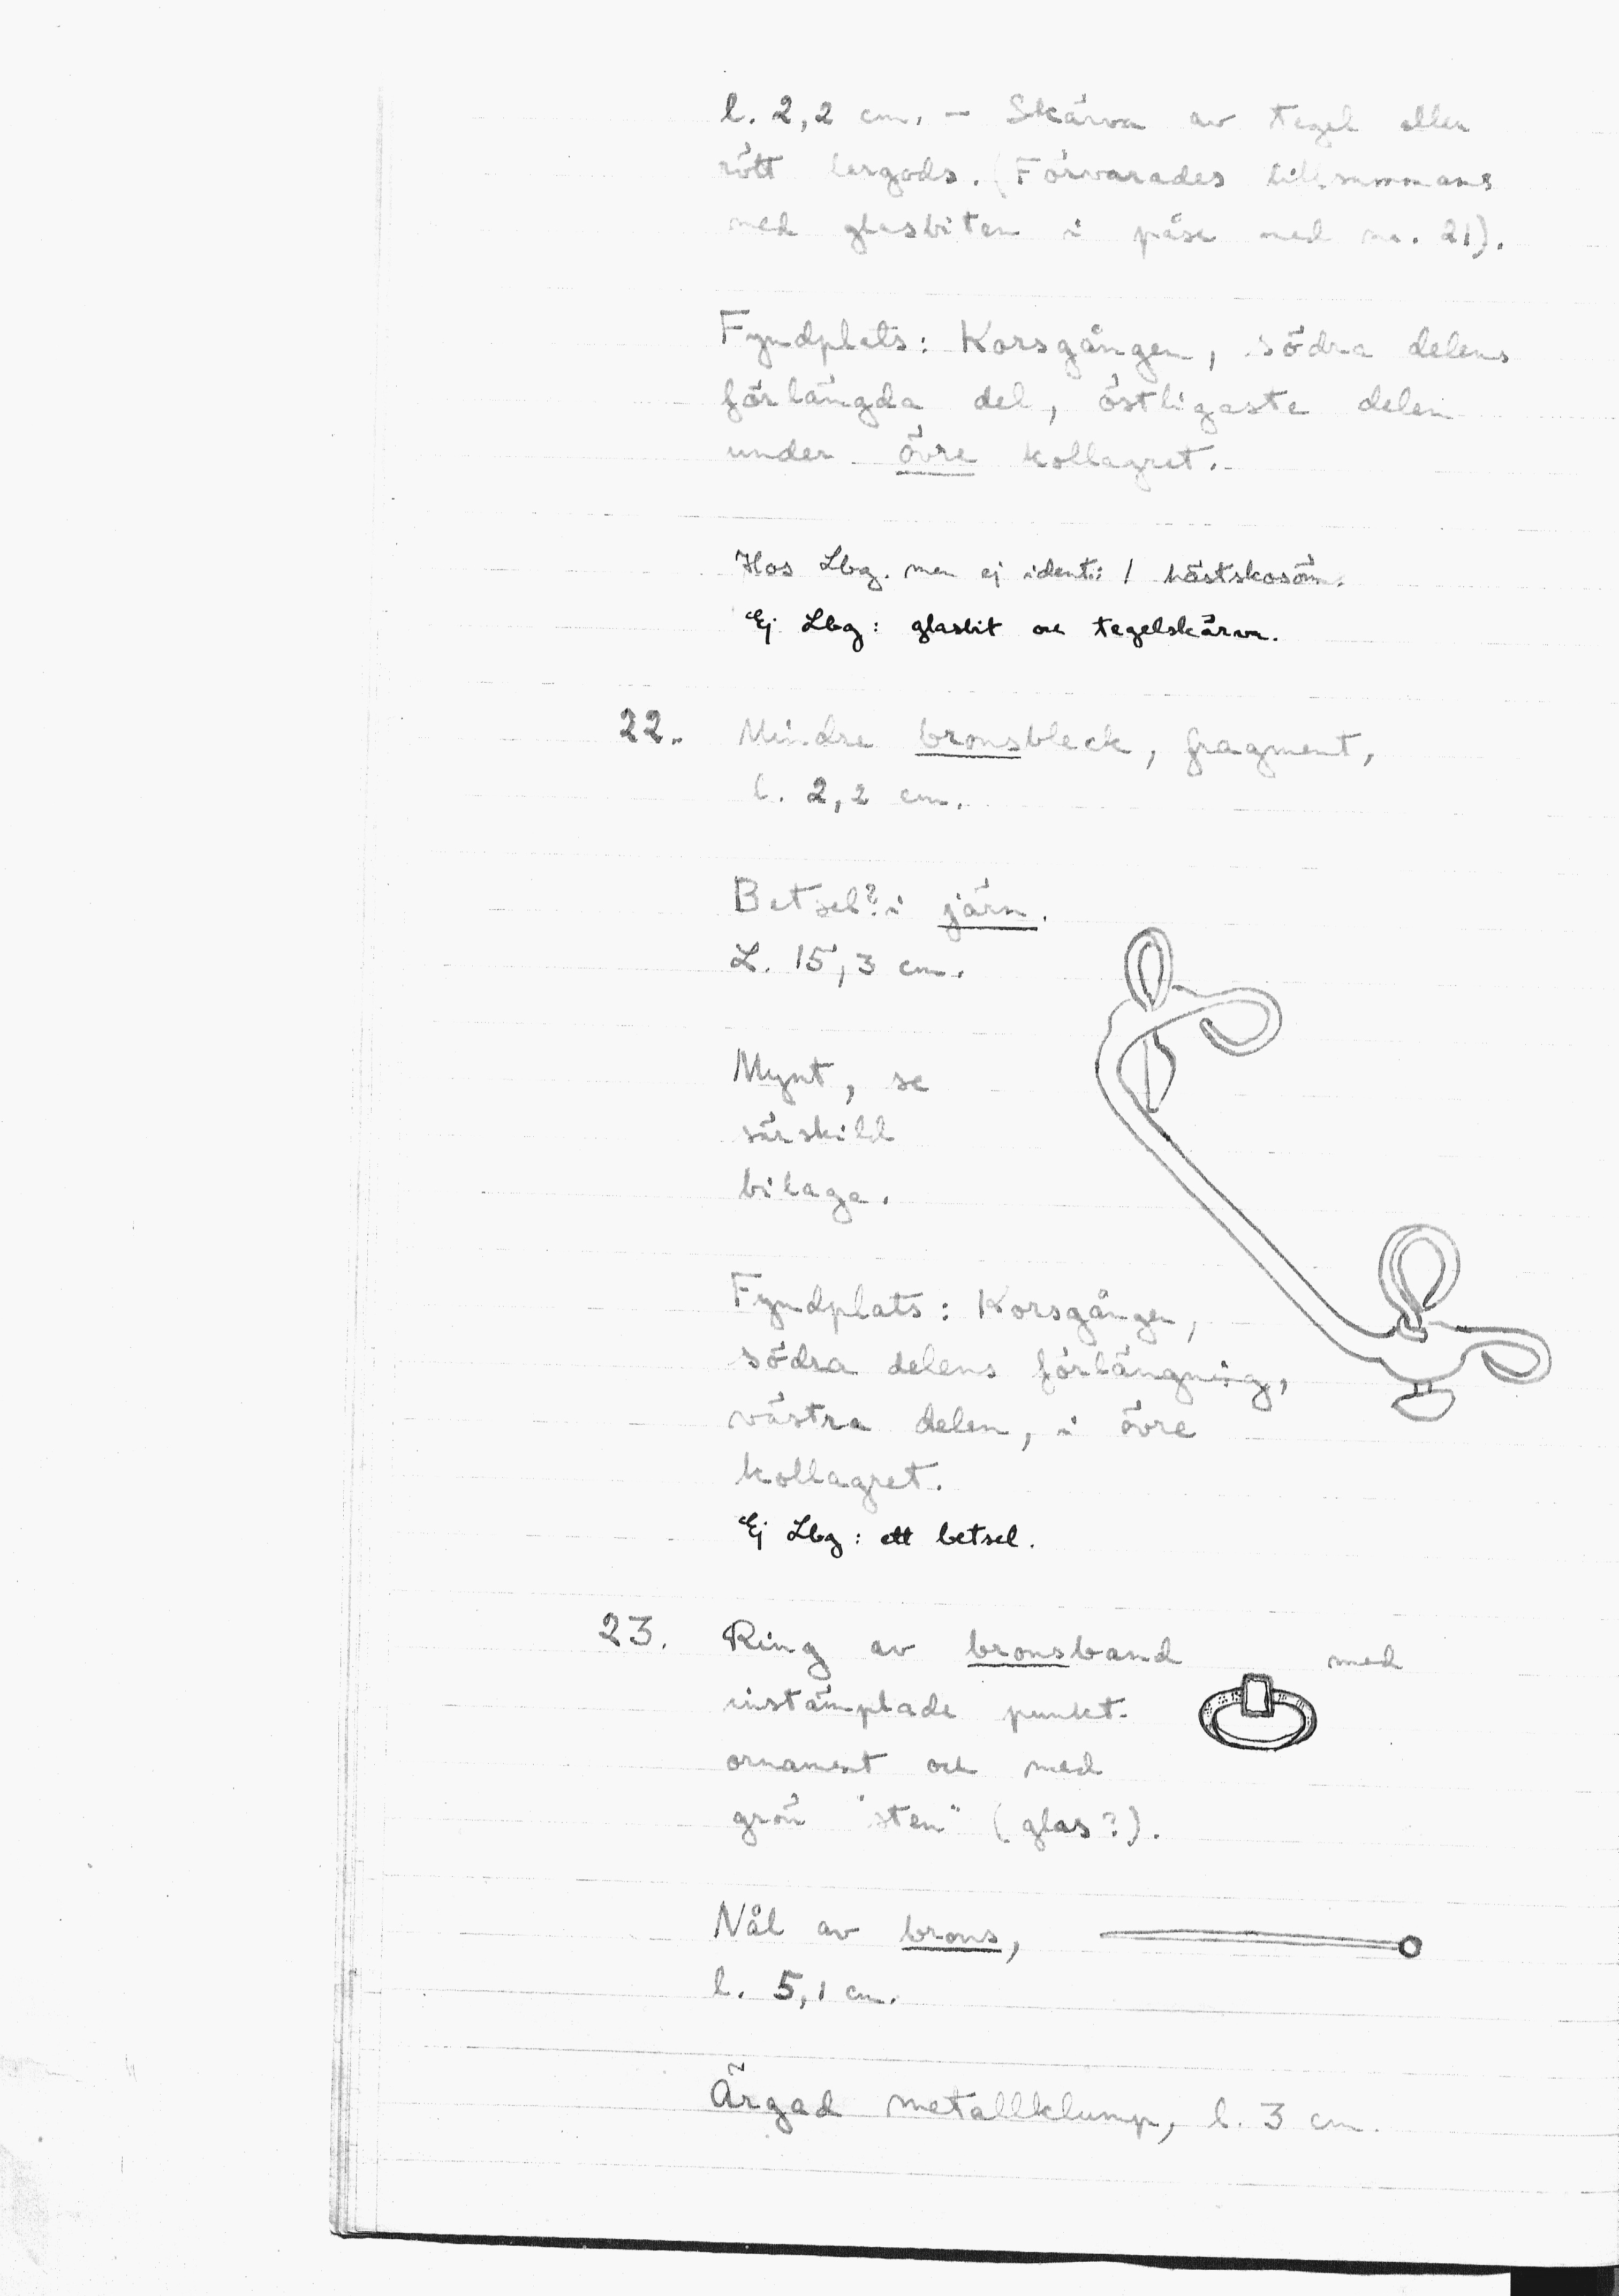 l. 2,2 cm. – Skärva av tegel eller
rött lergods. (Förvarades tillsammans
med glasbiten i påse med nr. 21).
Fyndplats: Korsgången, södra delens
förlängda del, östligaste delen
under övre kollagret.
Hos Lbg. men ej ident.: 1 hästskosöm.
Ej Lbg: glasbit och tegelskärva.
22. Mindre bronsbleck, fragment,
l. 2,2 cm.
Betsel? i järn.
L. 15,3 cm.
Mynt, se
särskild
bilaga.
Fyndplats: Korsgången,
södra delens förlängning,
västra delen, i övre
kollagret.
Ej Lbg: ett betsel.
23. Ring av bronsband med
instämplade punkt-
ornament och med
grön "sten" (glas?).
Nål av brons,
l. 5,1 cm.
Ärgad metallklump, l. 3 cm.